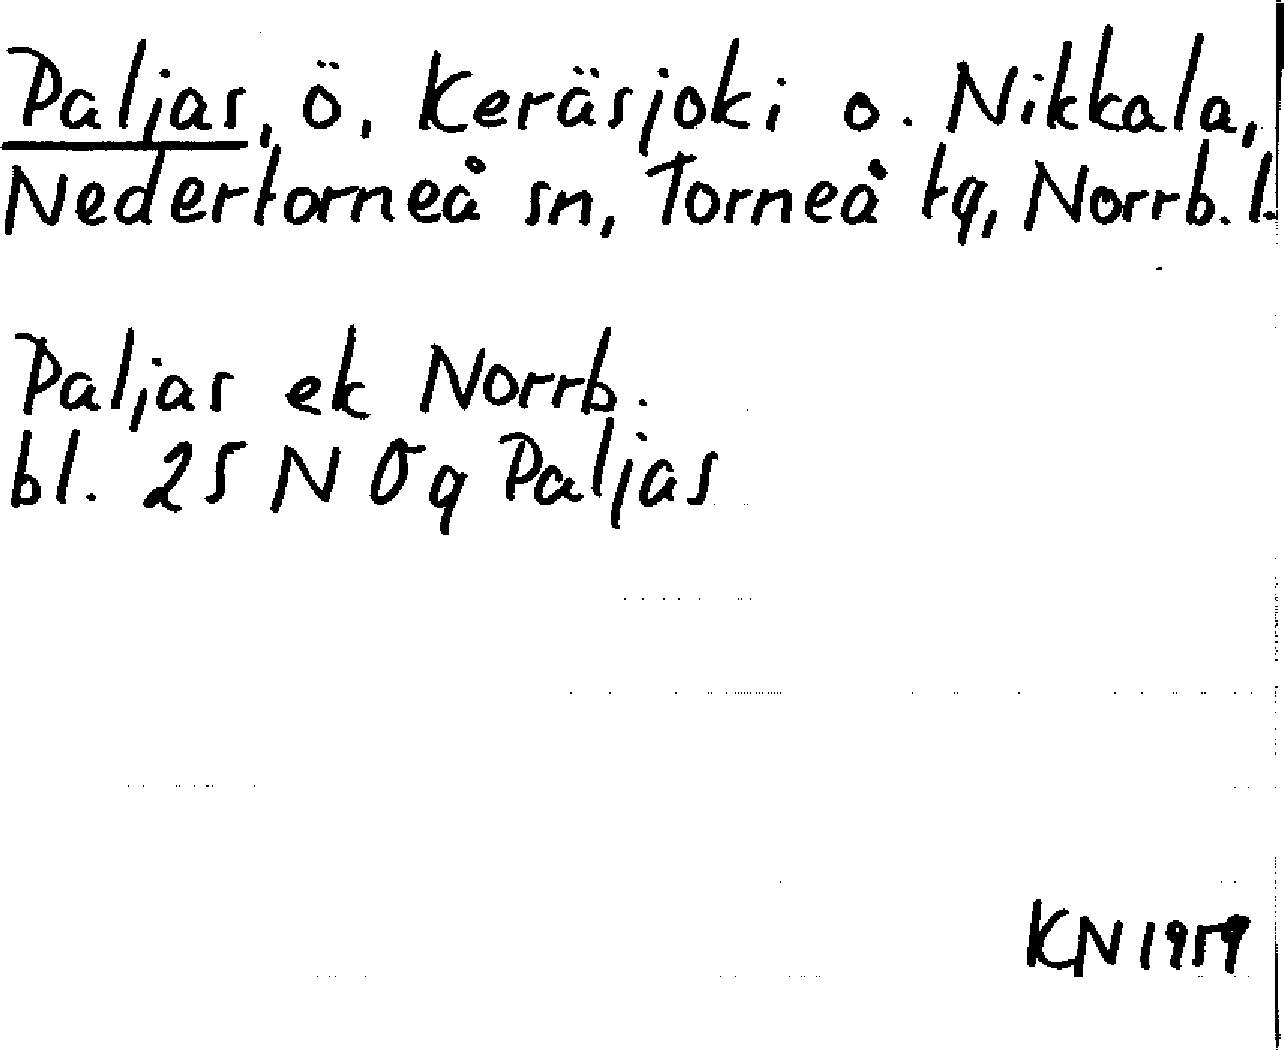 Paljas, ö, Keräsjoki o. Nikkala,
Nedertorneå sn, Torneå tg, Norrb. l.
Paljas ek Norrb.
bl. 25 N Ög Paljas
KN 1959